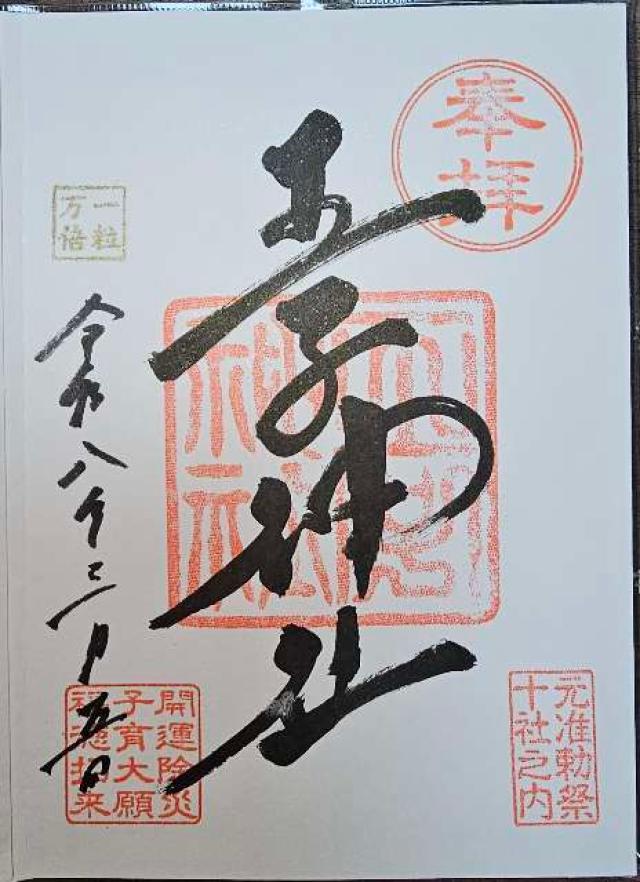 奉拝
元准勅祭
十社之内
王子神社
一粒
万倍
令和八年三月五日
開運除災
子育大願
福徳招来